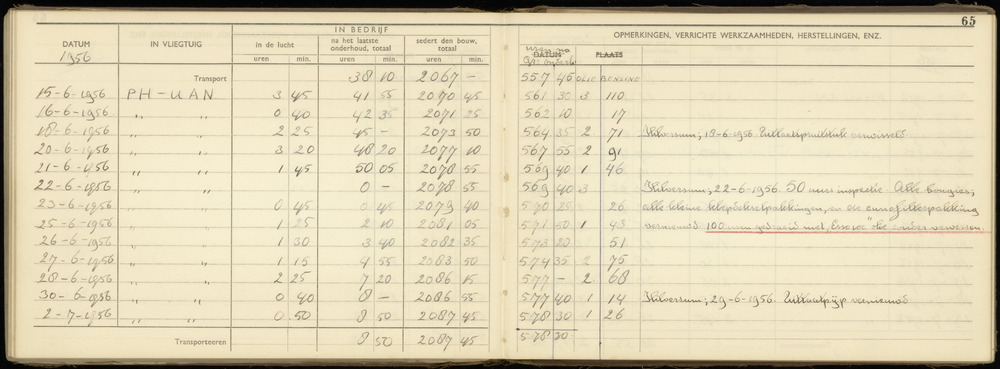 65
IN BEDRIJF
OPMERKINGEN, VERRICHTE WERKZAAMHEDEN, HERSTELLINGEN, ENZ.
DATUM IN VLIEGTUIG in de lucht na het laatste onderhoud, totaal sedert den bouw, totaal uren na DATUM PLAATS
1956 uren min. uren min. uren min.
Transport 38 10 2067 – 557 45 OLIE BENZINE
15-6-1956 PH-UAN 3 45 41 55 2070 45 561 30 3 110
16-6-1956 " " 0 40 42 35 2071 25 562 10 17
18-6-1956 " " 2 25 45 – 2073 50 564 35 2 71 Hilversum; 19-6-1956
20-6-1956 " " 3 20 48 20 2077 10 567 55 2 91
21-6-1956 " " 1 45 50 05 2078 55 569 40 1 46
22-6-1956 " " 0 – 2078 55 569 40 3 Hilversum; 22-6-1956 50 uurs inspectie Alle bougies,
23-6-1956 " " 0 45 0 45 2079 40 570 25 26 alle kleine klepdekselpakkingen, en de cunofilterpakking
25-6-1956 " " 1 25 2 10 2081 05 571 50 1 43 vernieuwd. 100 uren gedraaid met „Esso 100" olie
26-6-1956 " " 1 30 3 40 2082 35 573 20 51
27-6-1956 " " 1 15 4 55 2083 50 574 35 2 75
28-6-1956 " " 2 25 7 20 2086 15 577 – 2 68
30-6-1956 " " 0 40 8 – 2086 55 577 40 1 14 Hilversum; 29-6-1956. Uitlaatpijp vernieuwd
2-7-1956 " " 0 50 8 50 2087 45 578 30 1 26
Transporteeren 8 50 2087 45 578 30